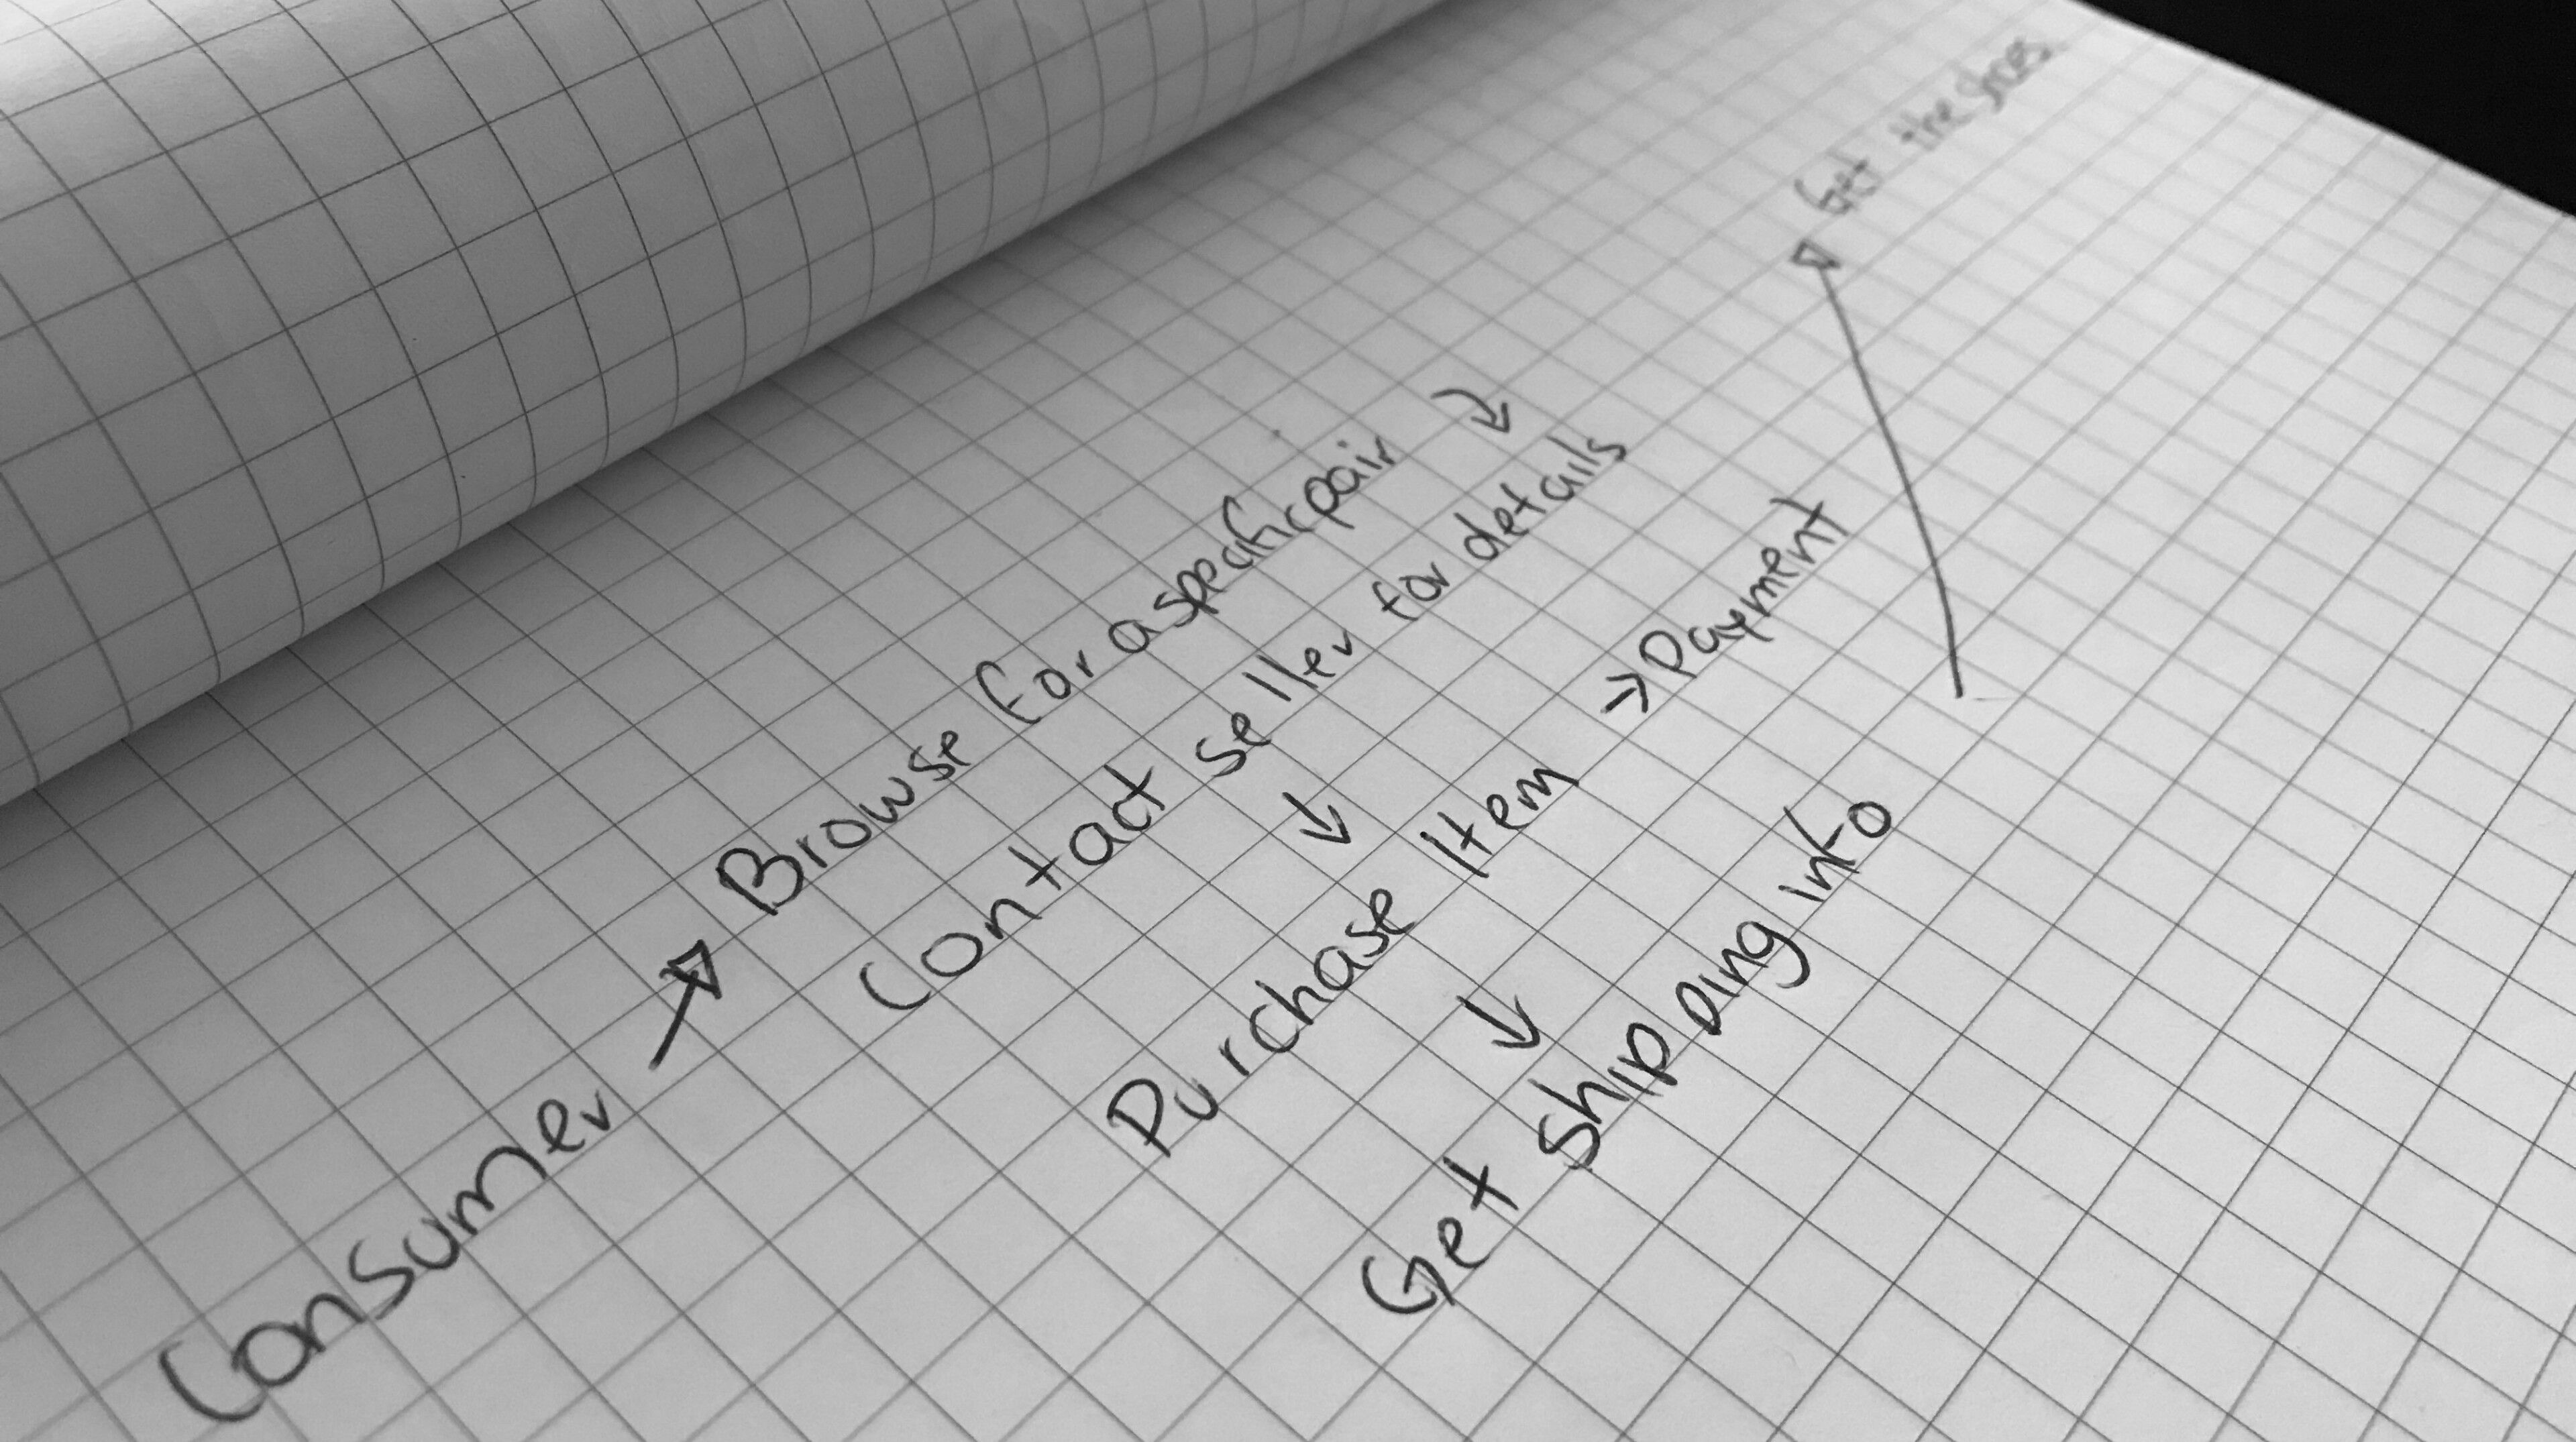 Consumer → Browse for a specific pair
Contact seller for details
Purchase Item → Payment
Get shipping info
Get the shoes